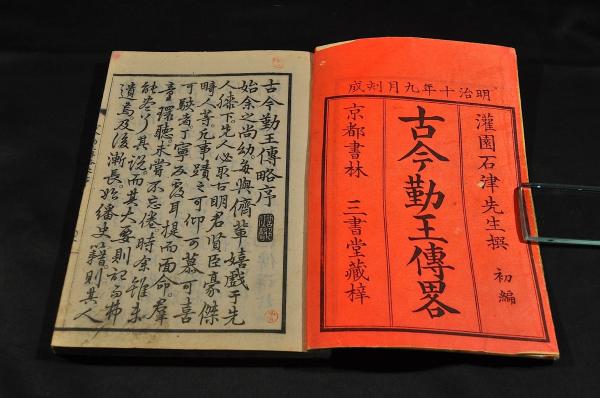 明治十年九月刻成
灌園石津先生撰 初編
古今勤王傳畧
京都書林 三書堂藏梓
古今勤王傳略序
始余之尚幼每與儕輩嬉戲于先
人膝下先人必取古明君賢臣豪傑
人等事蹟之可仰可慕可喜
可駭者丁寧反覆耳提而面命羣
童環聽未嘗不忘倦時余雖未
能悉了其説而其大要則記而弗
遺焉及後漸長始繙史籍則其人